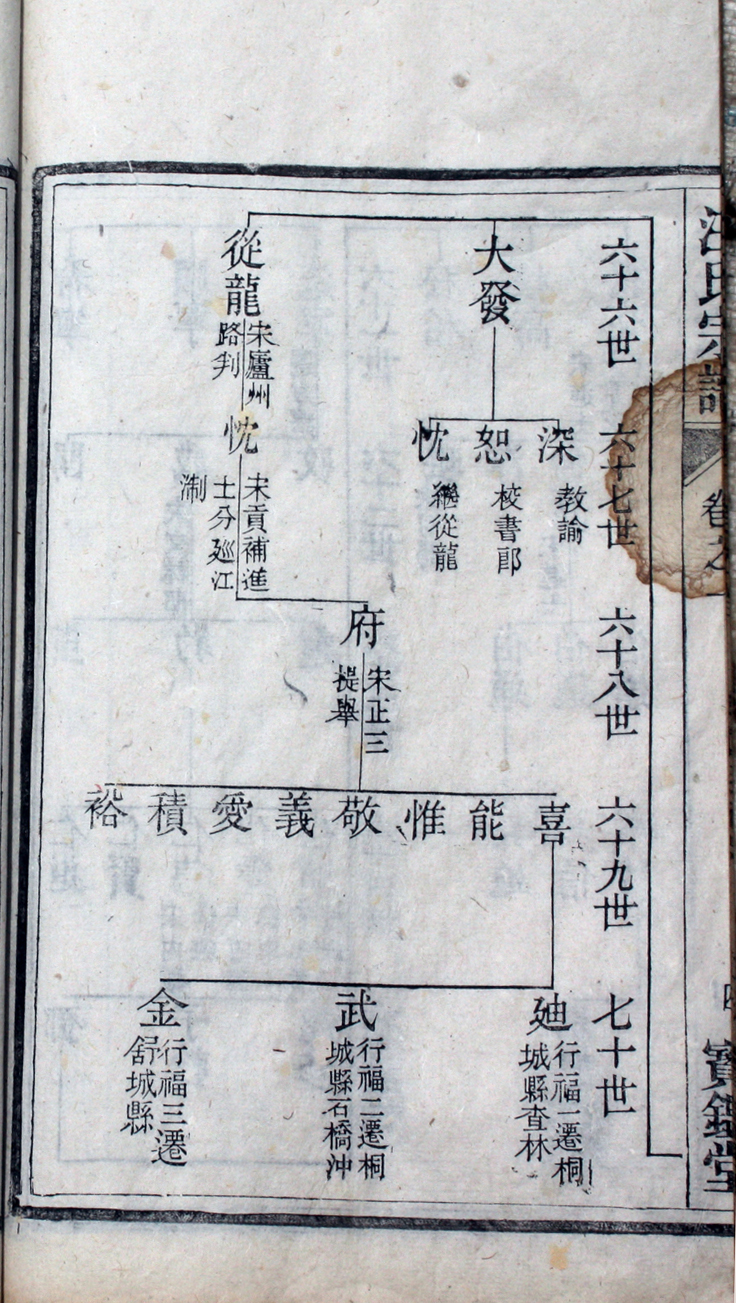 氏宗譜
卷之
四
寶鑑堂
六十六世
大發
從龍
宋廬州
路判
六十七世
深
教諭
恕
校書郎
忱
繼從龍
忱
宋貢補進
士分廵江
淛
六十八世
府
宋正三
提舉
六十九世
喜
能
惟
敬
義
愛
積
裕
七十世
廸
行福一遷桐
城縣查林
武
行福二遷桐
城縣石橋沖
金
行福三遷
舒城縣